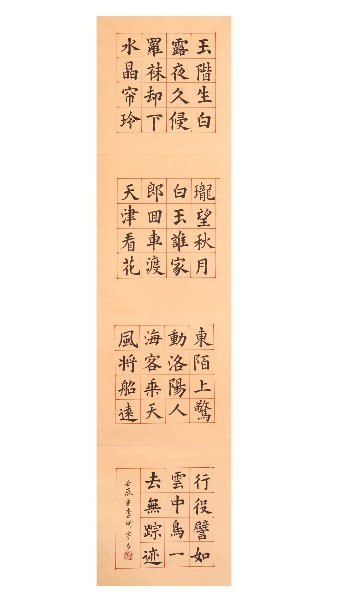 玉階生白
露夜久侵
羅袜却下
水晶帘玲
瓏望秋月
白玉誰家
郎回車渡
天津看花
東陌上驚
動洛陽人
海客乘天
風將船遠
行役譬如
雲中鳥一
去無踪迹